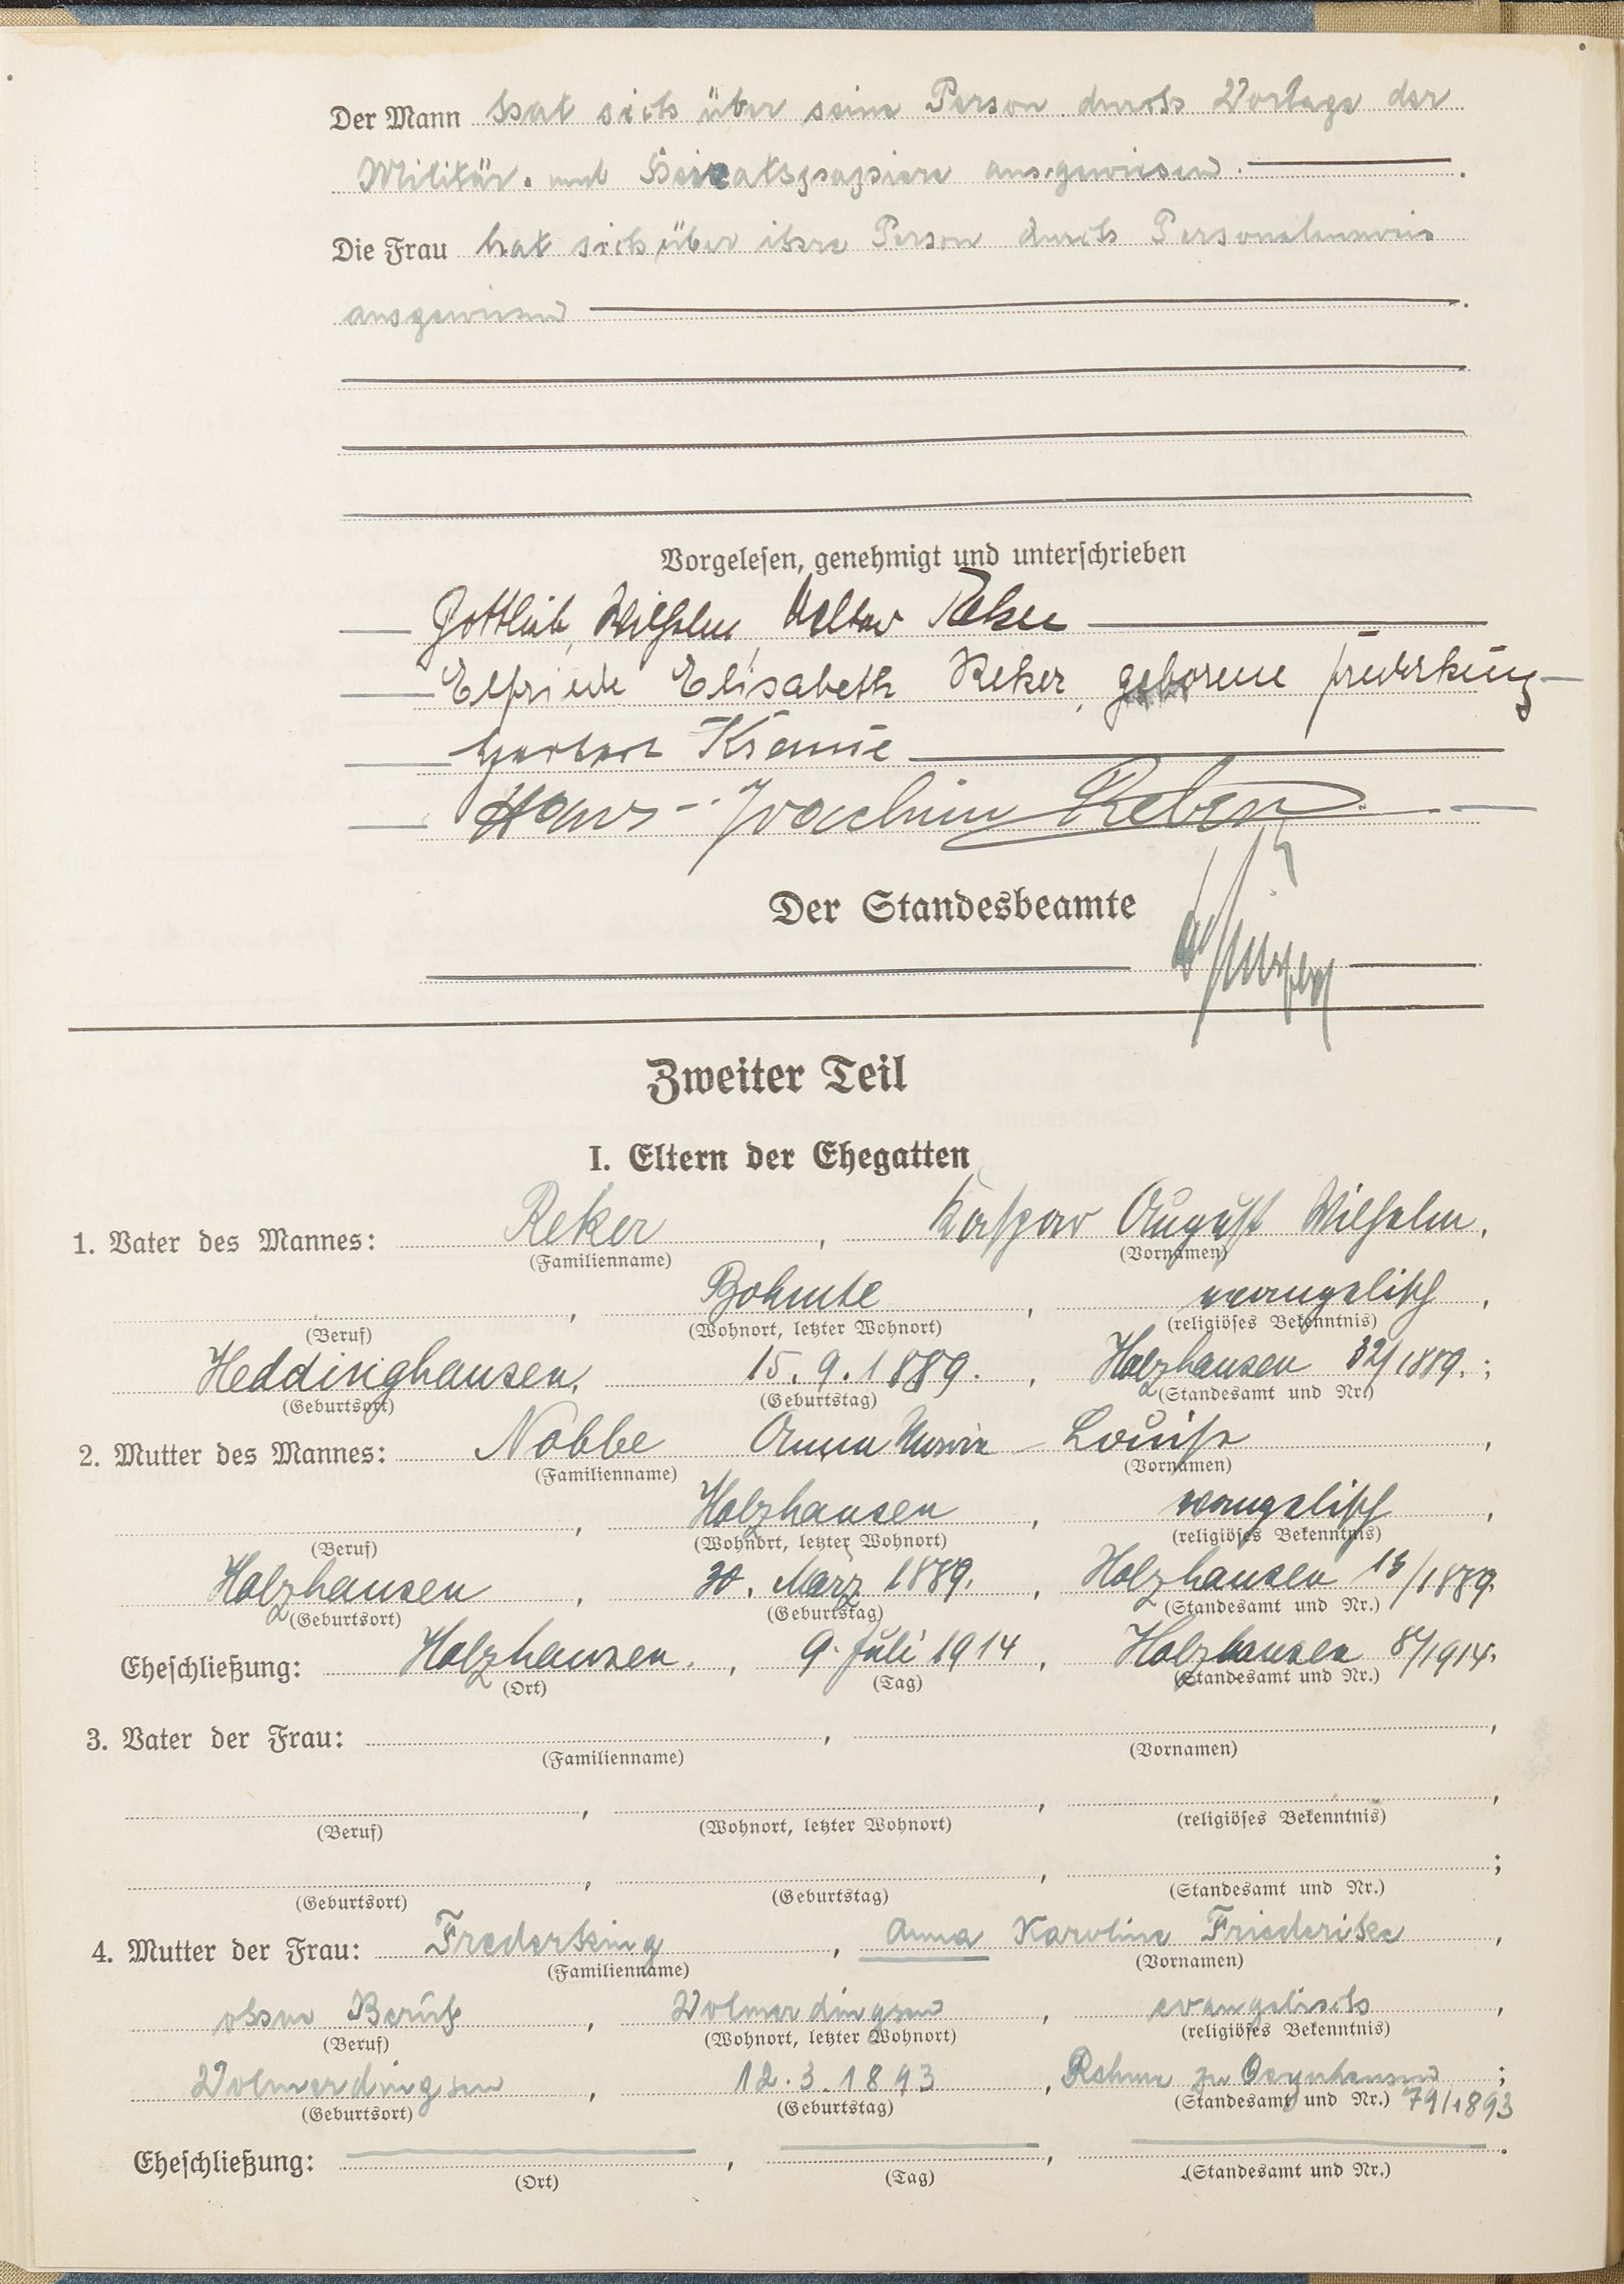 Der Mann hat sich über seine Person durch Vorlage der
Militär- und Heiratspapiere ausgewiesen.
Die Frau hat sich über ihre Person durch Personalausweis
ausgewiesen.
Vorgelesen, genehmigt und unterschrieben
Gottlieb, Wilhelm, Walter Reker
Elfriede Elisabeth Reker, geborene Frederking
Herbert Krause
Hans-Joachim
Der Standesbeamte
Zweiter Teil
I. Eltern der Ehegatten
1. Vater des Mannes: Reker, Kaspar August Wilhelm,
(Familienname) (Vornamen)
, Bohmte, evangelisch,
(Beruf) (Wohnort, letzter Wohnort) (religiöses Bekenntnis)
Heddinghausen, 15.9.1889., Holzhausen 32/1889.;
(Geburtsort) (Geburtstag) (Standesamt und Nr.)
2. Mutter des Mannes: Nobbe Anna Marie-Louise,
(Familienname) (Vornamen)
, Holzhausen, evangelisch,
(Beruf) (Wohnort, letzter Wohnort) (religiöses Bekenntnis)
Holzhausen, 30. März 1889., Holzhausen 13/1889.
(Geburtsort) (Geburtstag) (Standesamt und Nr.)
Eheschließung: Holzhausen., 9. Juli 1914, Holzhausen 8/1914.
(Ort) (Tag) (Standesamt und Nr.)
3. Vater der Frau: , ,
(Familienname) (Vornamen)
, , ,
(Beruf) (Wohnort, letzter Wohnort) (religiöses Bekenntnis)
, , ;
(Geburtsort) (Geburtstag) (Standesamt und Nr.)
4. Mutter der Frau: Frederking, Anna Karoline Friederike,
(Familienname) (Vornamen)
ohne Beruf, Volmerdingsen, evangelisch,
(Beruf) (Wohnort, letzter Wohnort) (religiöses Bekenntnis)
Volmerdingsen, 12.3.1893, Rehme zu Oeynhausen;
(Geburtsort) (Geburtstag) (Standesamt und Nr.) 79/1893
Eheschließung: , , .
(Ort) (Tag) (Standesamt und Nr.)